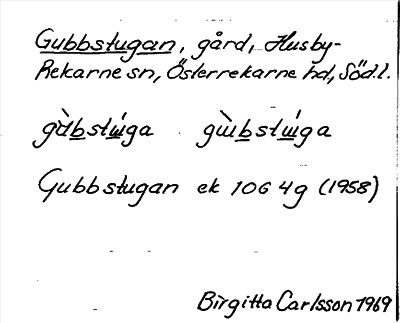 Gubbstugan, gård, Husby-
Rekarne sn, Österrekarne hd, Söd.l.
gùbstúga gùbstúga
Gubbstugan ek 10G 4g (1958)
Birgitta Carlsson 1969